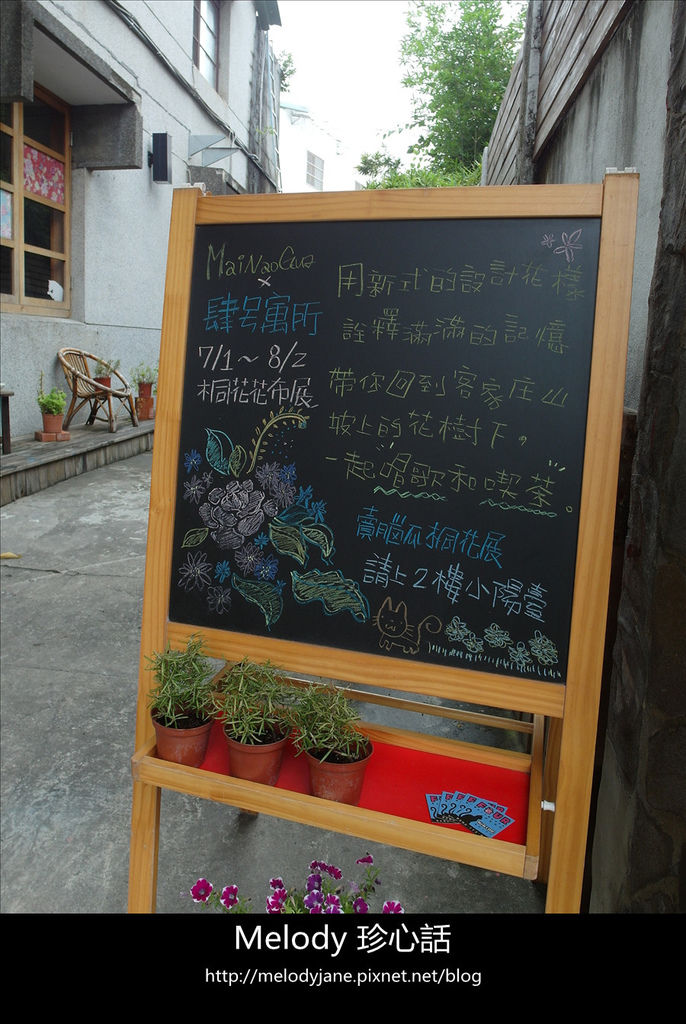 MaiNaoClub
x
肆号寓所
7/1～8/2
桐花花布展
用新式的設計花樣
詮釋滿滿的記憶
帶你回到客家庄山
坡上的花樹下。
一起唱歌和喫茶。
賣腦瓜桐花展
請上2樓小陽臺
Melody 珍心話
http://melodyjane.pixnet.net/blog